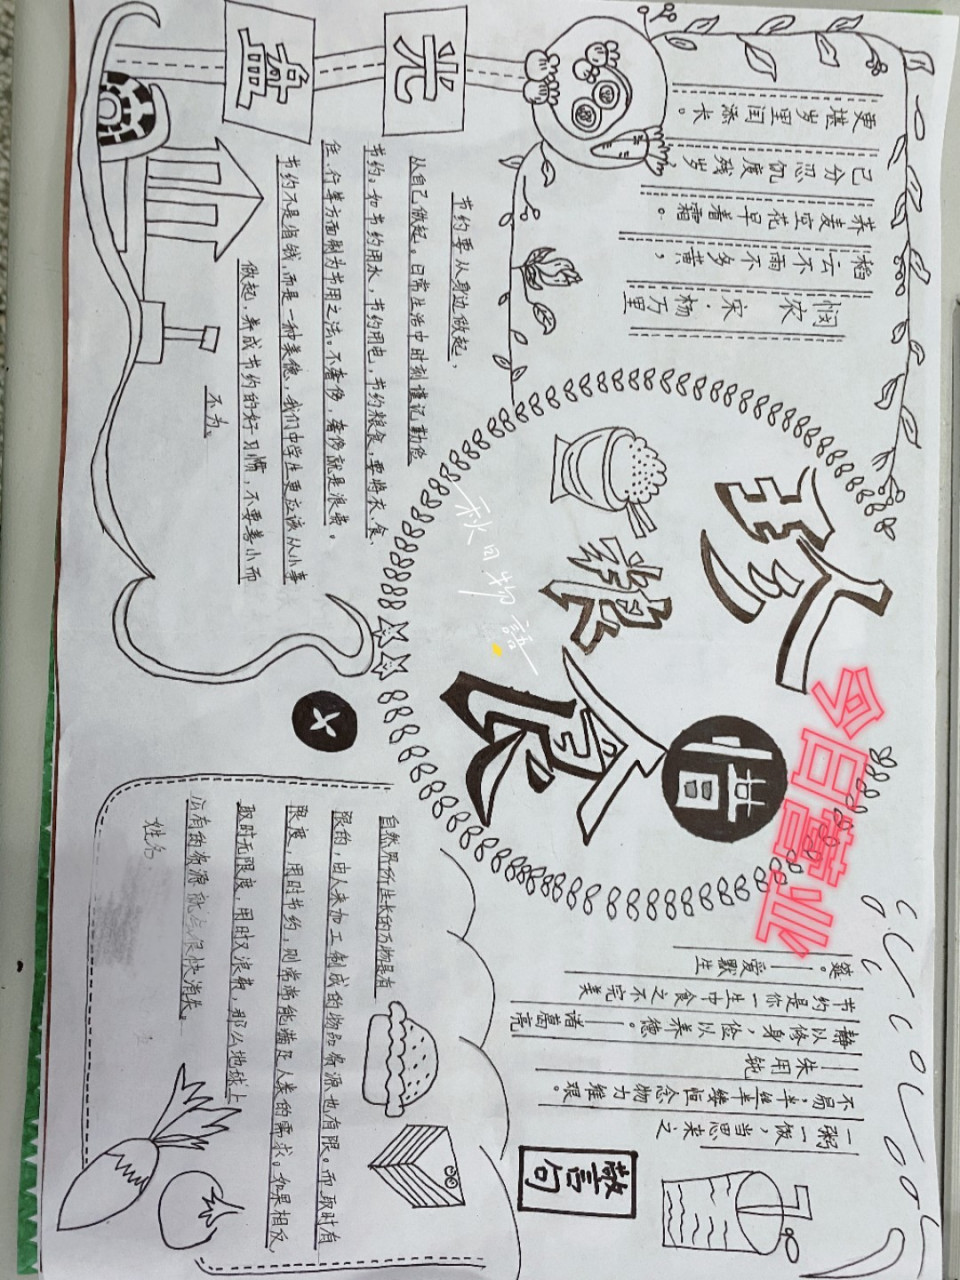 光盘
珍惜粮食
悯农
宋·杨万里
稻云不雨不多黄，
荞麦空花早着霜。
已分忍饥度残岁，
更堪岁里闰添长。
节约要从身边做起，
从自己做起。日常生活中时刻谨记勤俭
节约。如节约用水，节约用电，节约粮食，要将衣、食、
住、行等方面制为节用之法。不奢侈，奢侈就是浪费。
节约不是省钱，而是一种美德，我们中学生更应该从小事
做起，养成节约的好习惯，不要善小而
不为。
秋日物語
今日营业
警句
一粥一饭，当思来之
不易；半丝半缕恒念物力维艰。
——朱用纯
静以修身，俭以养德。——诸葛亮
节约是你一生中食之不完美
筵。——爱默生
自然界所生长的万物是有
限的，由人来加工制成的物品资源也有限。而取时有
限度，用时节约，则常常能满足人类的需求。如果相反，
取时无限度，用时又浪费，那么地球上
所有的资源就会很快消失。
姓名